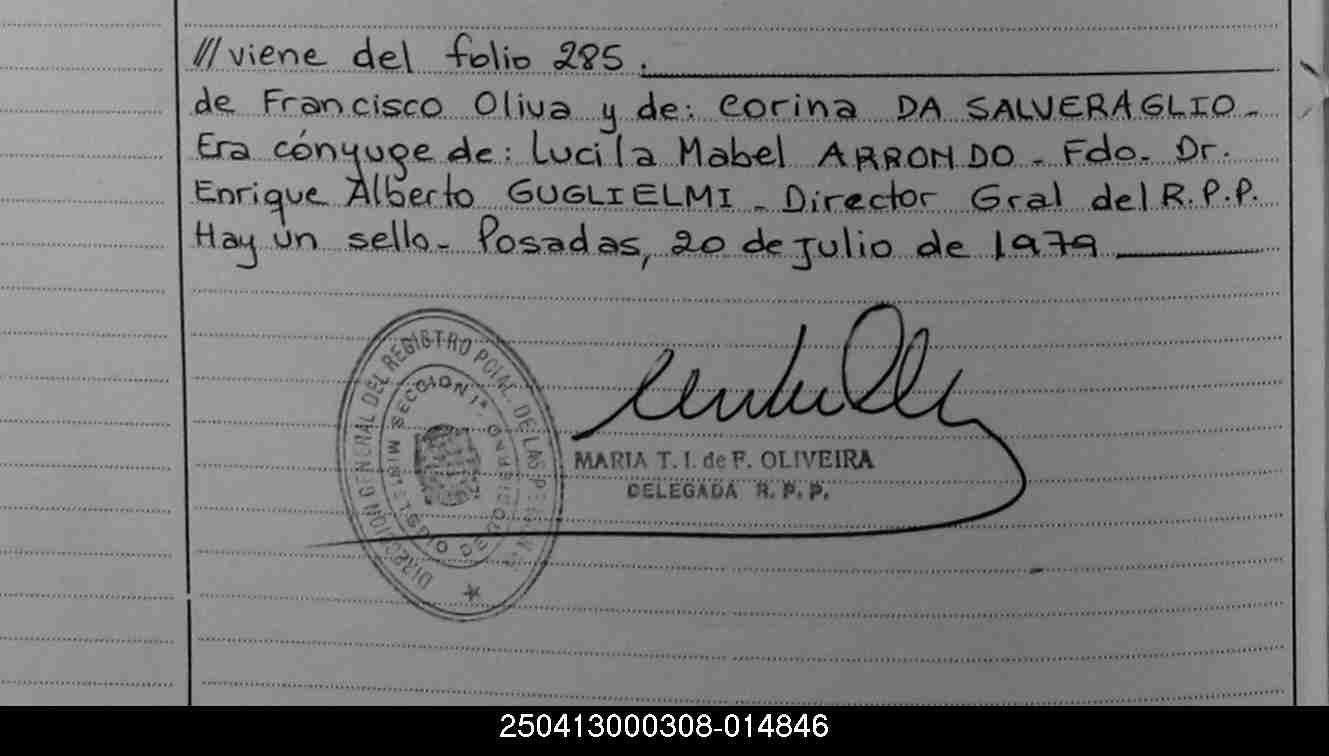 /// viene del folio 285.
de Francisco Oliva y de: Corina DA SALVERAGLIO-
Era cónyuge de: Lucila Mabel ARRONDO- Fdo- Dr.
Enrique Alberto GUGLIELMI- Director Gral del R.P.P.
Hay un sello- Posadas, 20 de julio de 1979
DIRECCION GENERAL DEL REGISTRO DE LAS
SECCION 1ª
MARIA T. I. de F. OLIVEIRA
DELEGADA R. P. P.
250413000308-014846